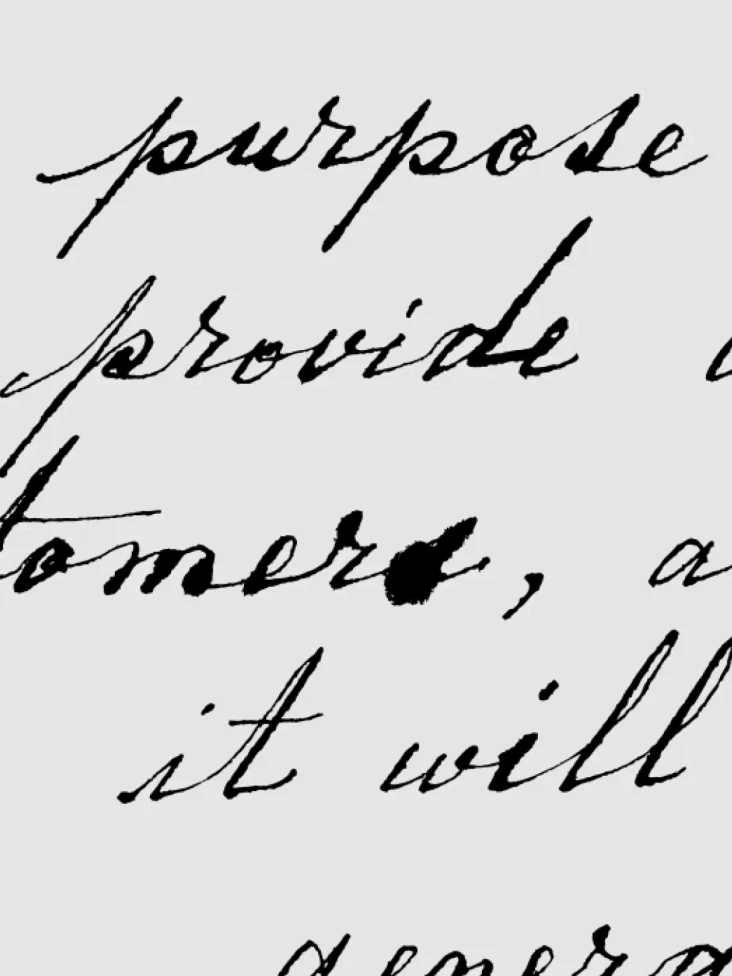 purpose
provide
tomers, a
it will
genera